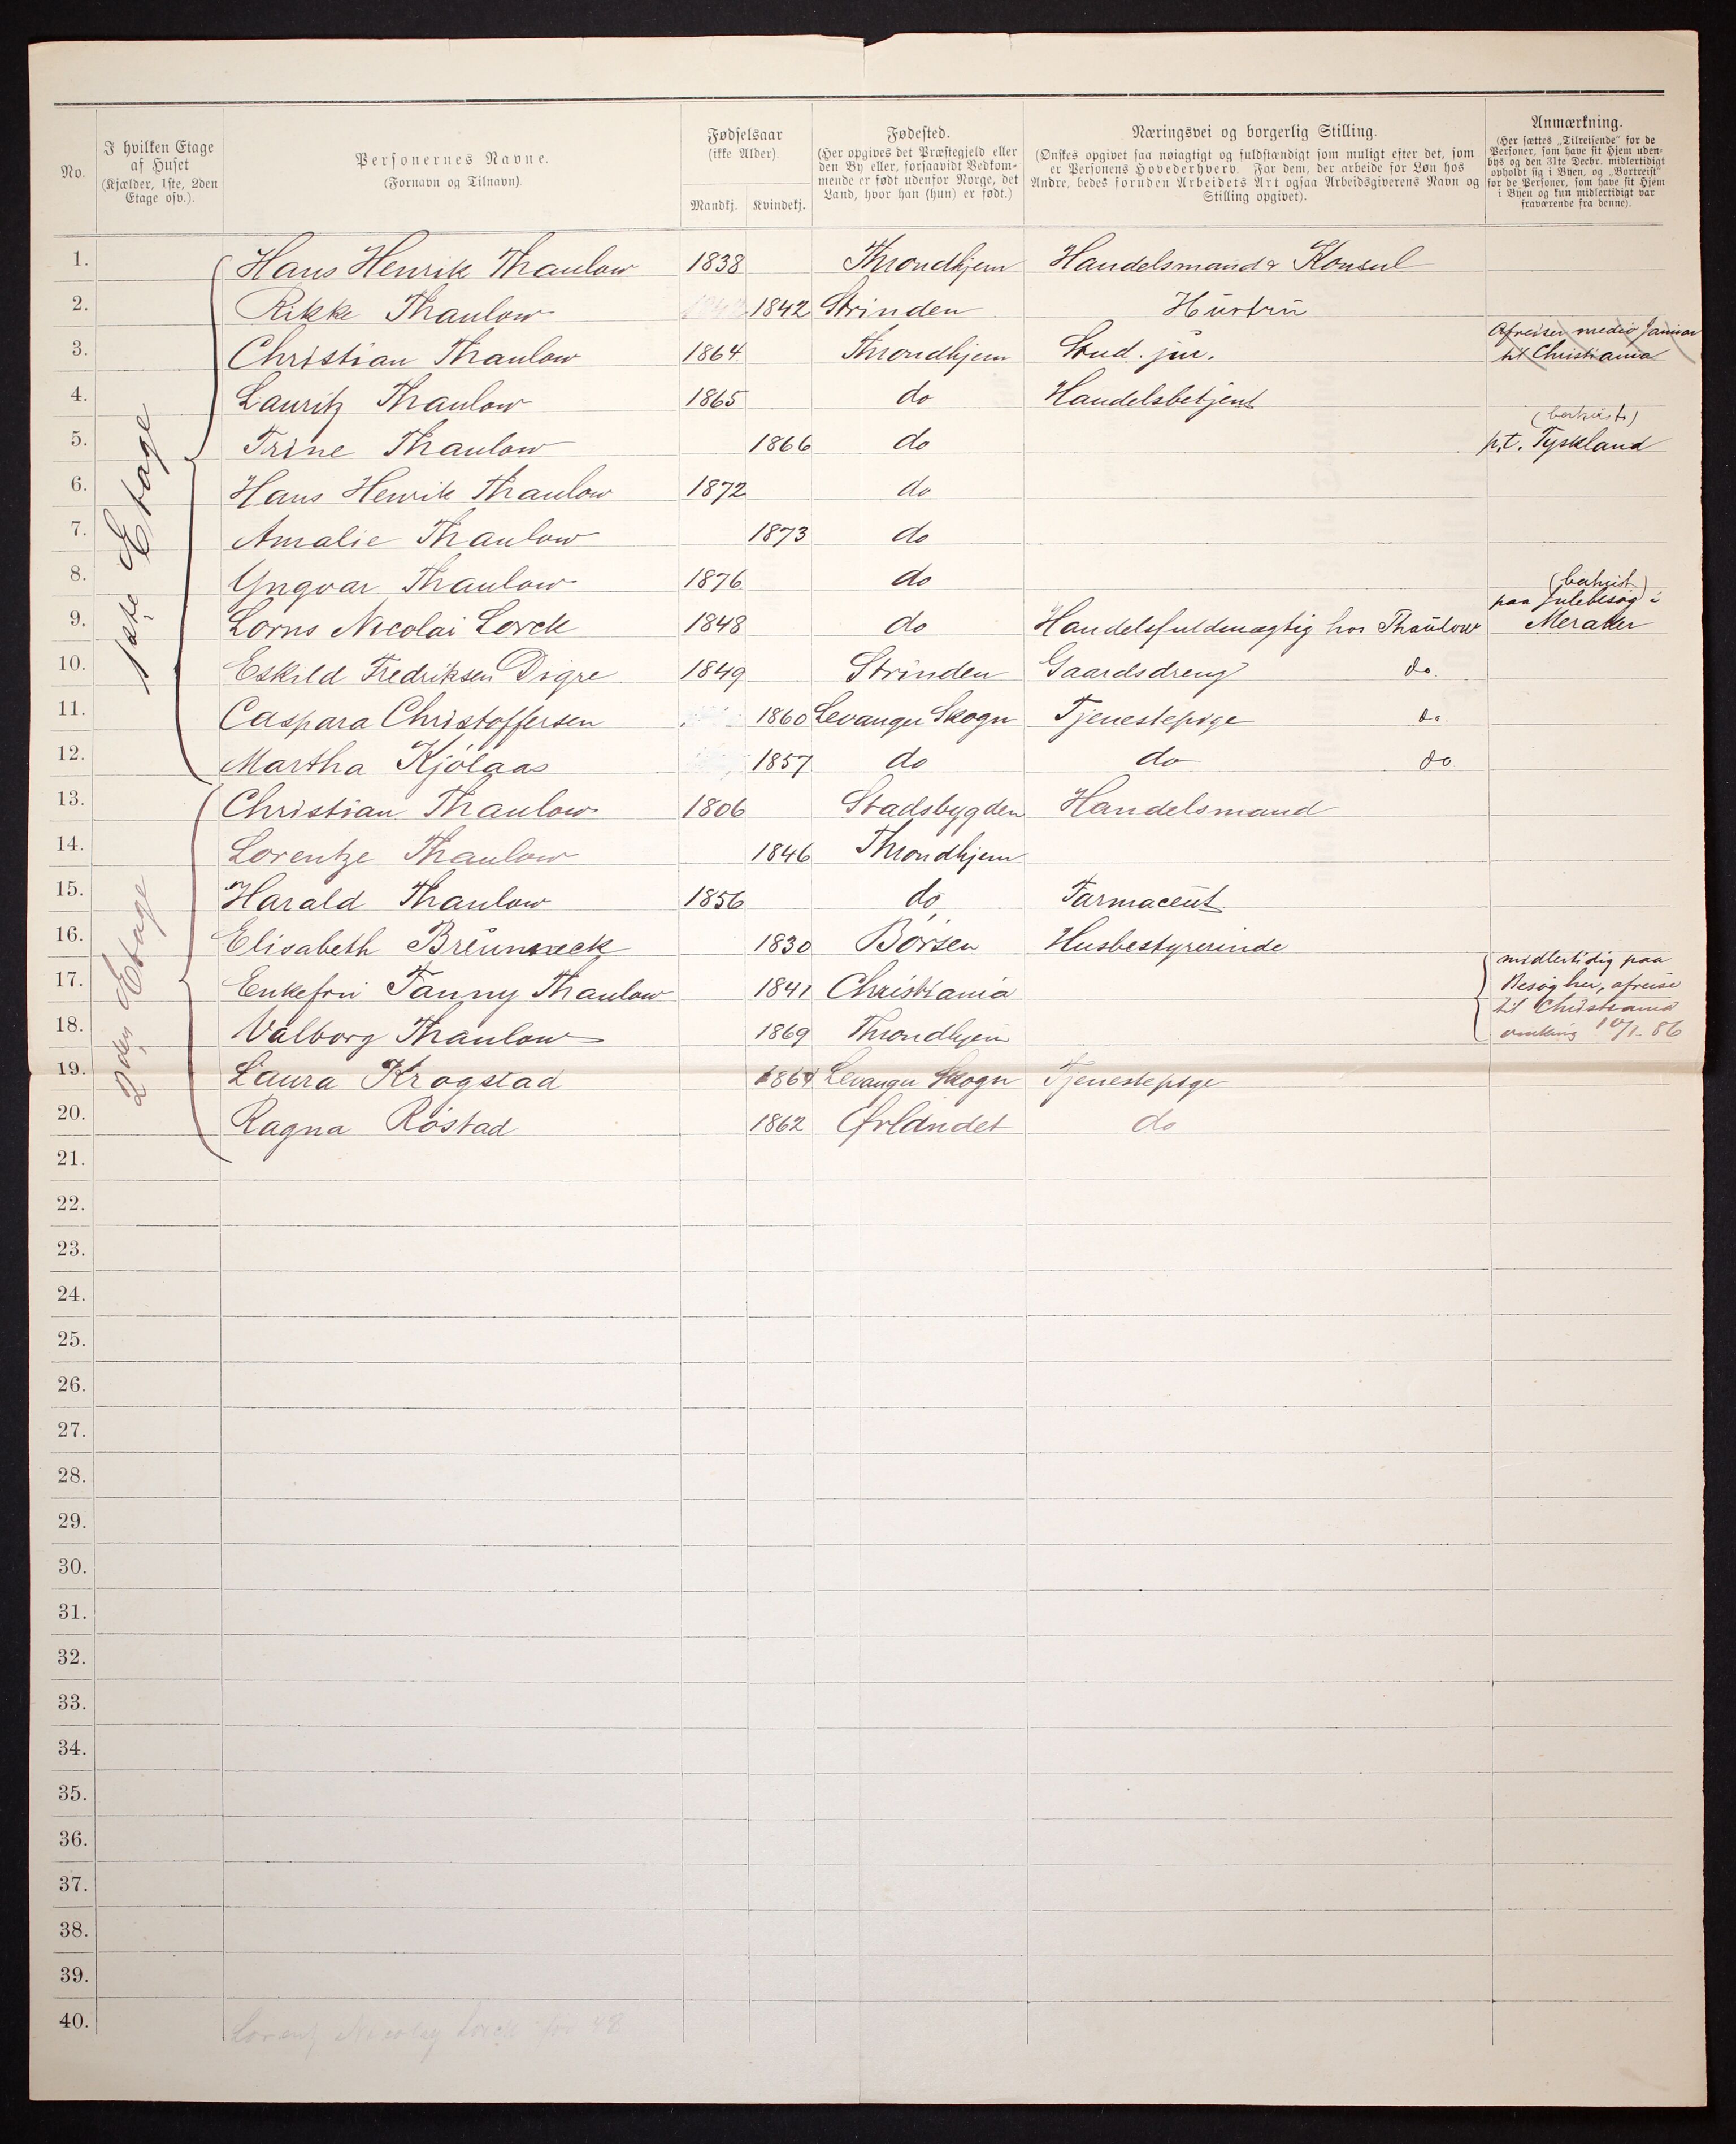 No.
I hvilken Etage
af Huset
(Kjælder, 1ste, 2den
Etage osv.).
Personernes Navne.
(Fornavn og Tilnavn).
Fødselsaar
(ikke Alder).
Mandkj. Kvindekj.
Fødested.
(Her opgives det Præstegjeld eller
den By eller, forsaavidt Vedkom-
mende er født udenfor Norge, det
Land, hvor han (hun) er født.)
Næringsvei og borgerlig Stilling.
(Ønskes opgivet saa nøiagtigt og fuldstændigt som muligt efter det, som
er Personens Hovederhverv. For dem, der arbeide for Løn hos
Andre, bedes foruden Arbeidets Art ogsaa Arbeidsgiverens Navn og
Stilling opgivet).
Anmærkning.
(Her sættes „Tilreisende“ for de
Personer, som have sit Hjem uden-
bys og den 31te Decbr. midlertidigt
opholdt sig i Byen, og „Bortreist“
for de Personer, som have sit Hjem
i Byen og kun midlertidigt var
fraværende fra denne).
1ste Etage
1. Hans Henrik Thaulow 1838 Throndhjem Handelsmand & Konsul
2. Rikke Thaulow 1842 Strinden Hustru
3. Christian Thaulow 1864 Throndhjem Stud. jur. Afreiser medio Januar
til Christiania
4. Lauritz Thaulow 1865 do Handelsbetjent
5. Trine Thaulow 1866 do (bortreist)
p.t. Tyskland
6. Hans Henrik Thaulow 1872 do
7. Amalie Thaulow 1873 do
8. Yngvar Thaulow 1876 do
9. Lorns Nicolai Lorck 1848 do Handelsfuldmægtig hos Thaulow (bortreist)
paa Julebesøg i
Meraker
10. Eskild Fredriksen Digre 1849 Strinden Gaardsdreng do.
11. Caspara Christoffersen 1860 Levanger Skogn Tjenestepige do.
12. Martha Kjølaas 1857 do do do.
2den Etage
13. Christian Thaulow 1806 Stadsbygden Handelsmand
14. Lorentze Thaulow 1846 Throndhjem
15. Harald Thaulow 1856 do Farmaceut
16. Elisabeth 1830 Børsen Husbestyrerinde
17. Enkefru Fanny Thaulow 1841 Christiania midlertidig paa
Besøg her, afreise
18. Valborg Thaulow 1869 Throndhjem til Christiania
omkring 10/1-86
19. Laura Krogstad Levanger Skogn Tjenestepige
20. Ragna Røstad 1862 Ørlandet do
21.
22.
23.
24.
25.
26.
27.
28.
29.
30.
31.
32.
33.
34.
35.
36.
37.
38.
39.
40. Lorentz Nicolay Lorck for 48